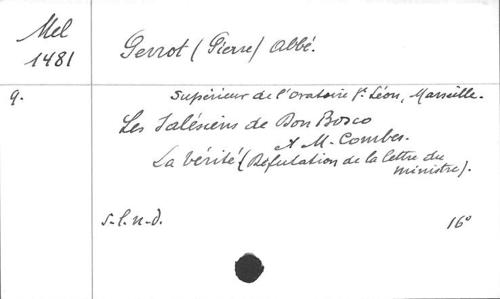 Mel
1481
Perrot (Pierre) Abbé.
9.
Supérieur de l'Oratoire St Léon, Marseille.
Les Salésiens de Don Bosco
A M. Combes.
La Vérité (Réfutation de la lettre du
ministre).
s.l.n.d.
16°